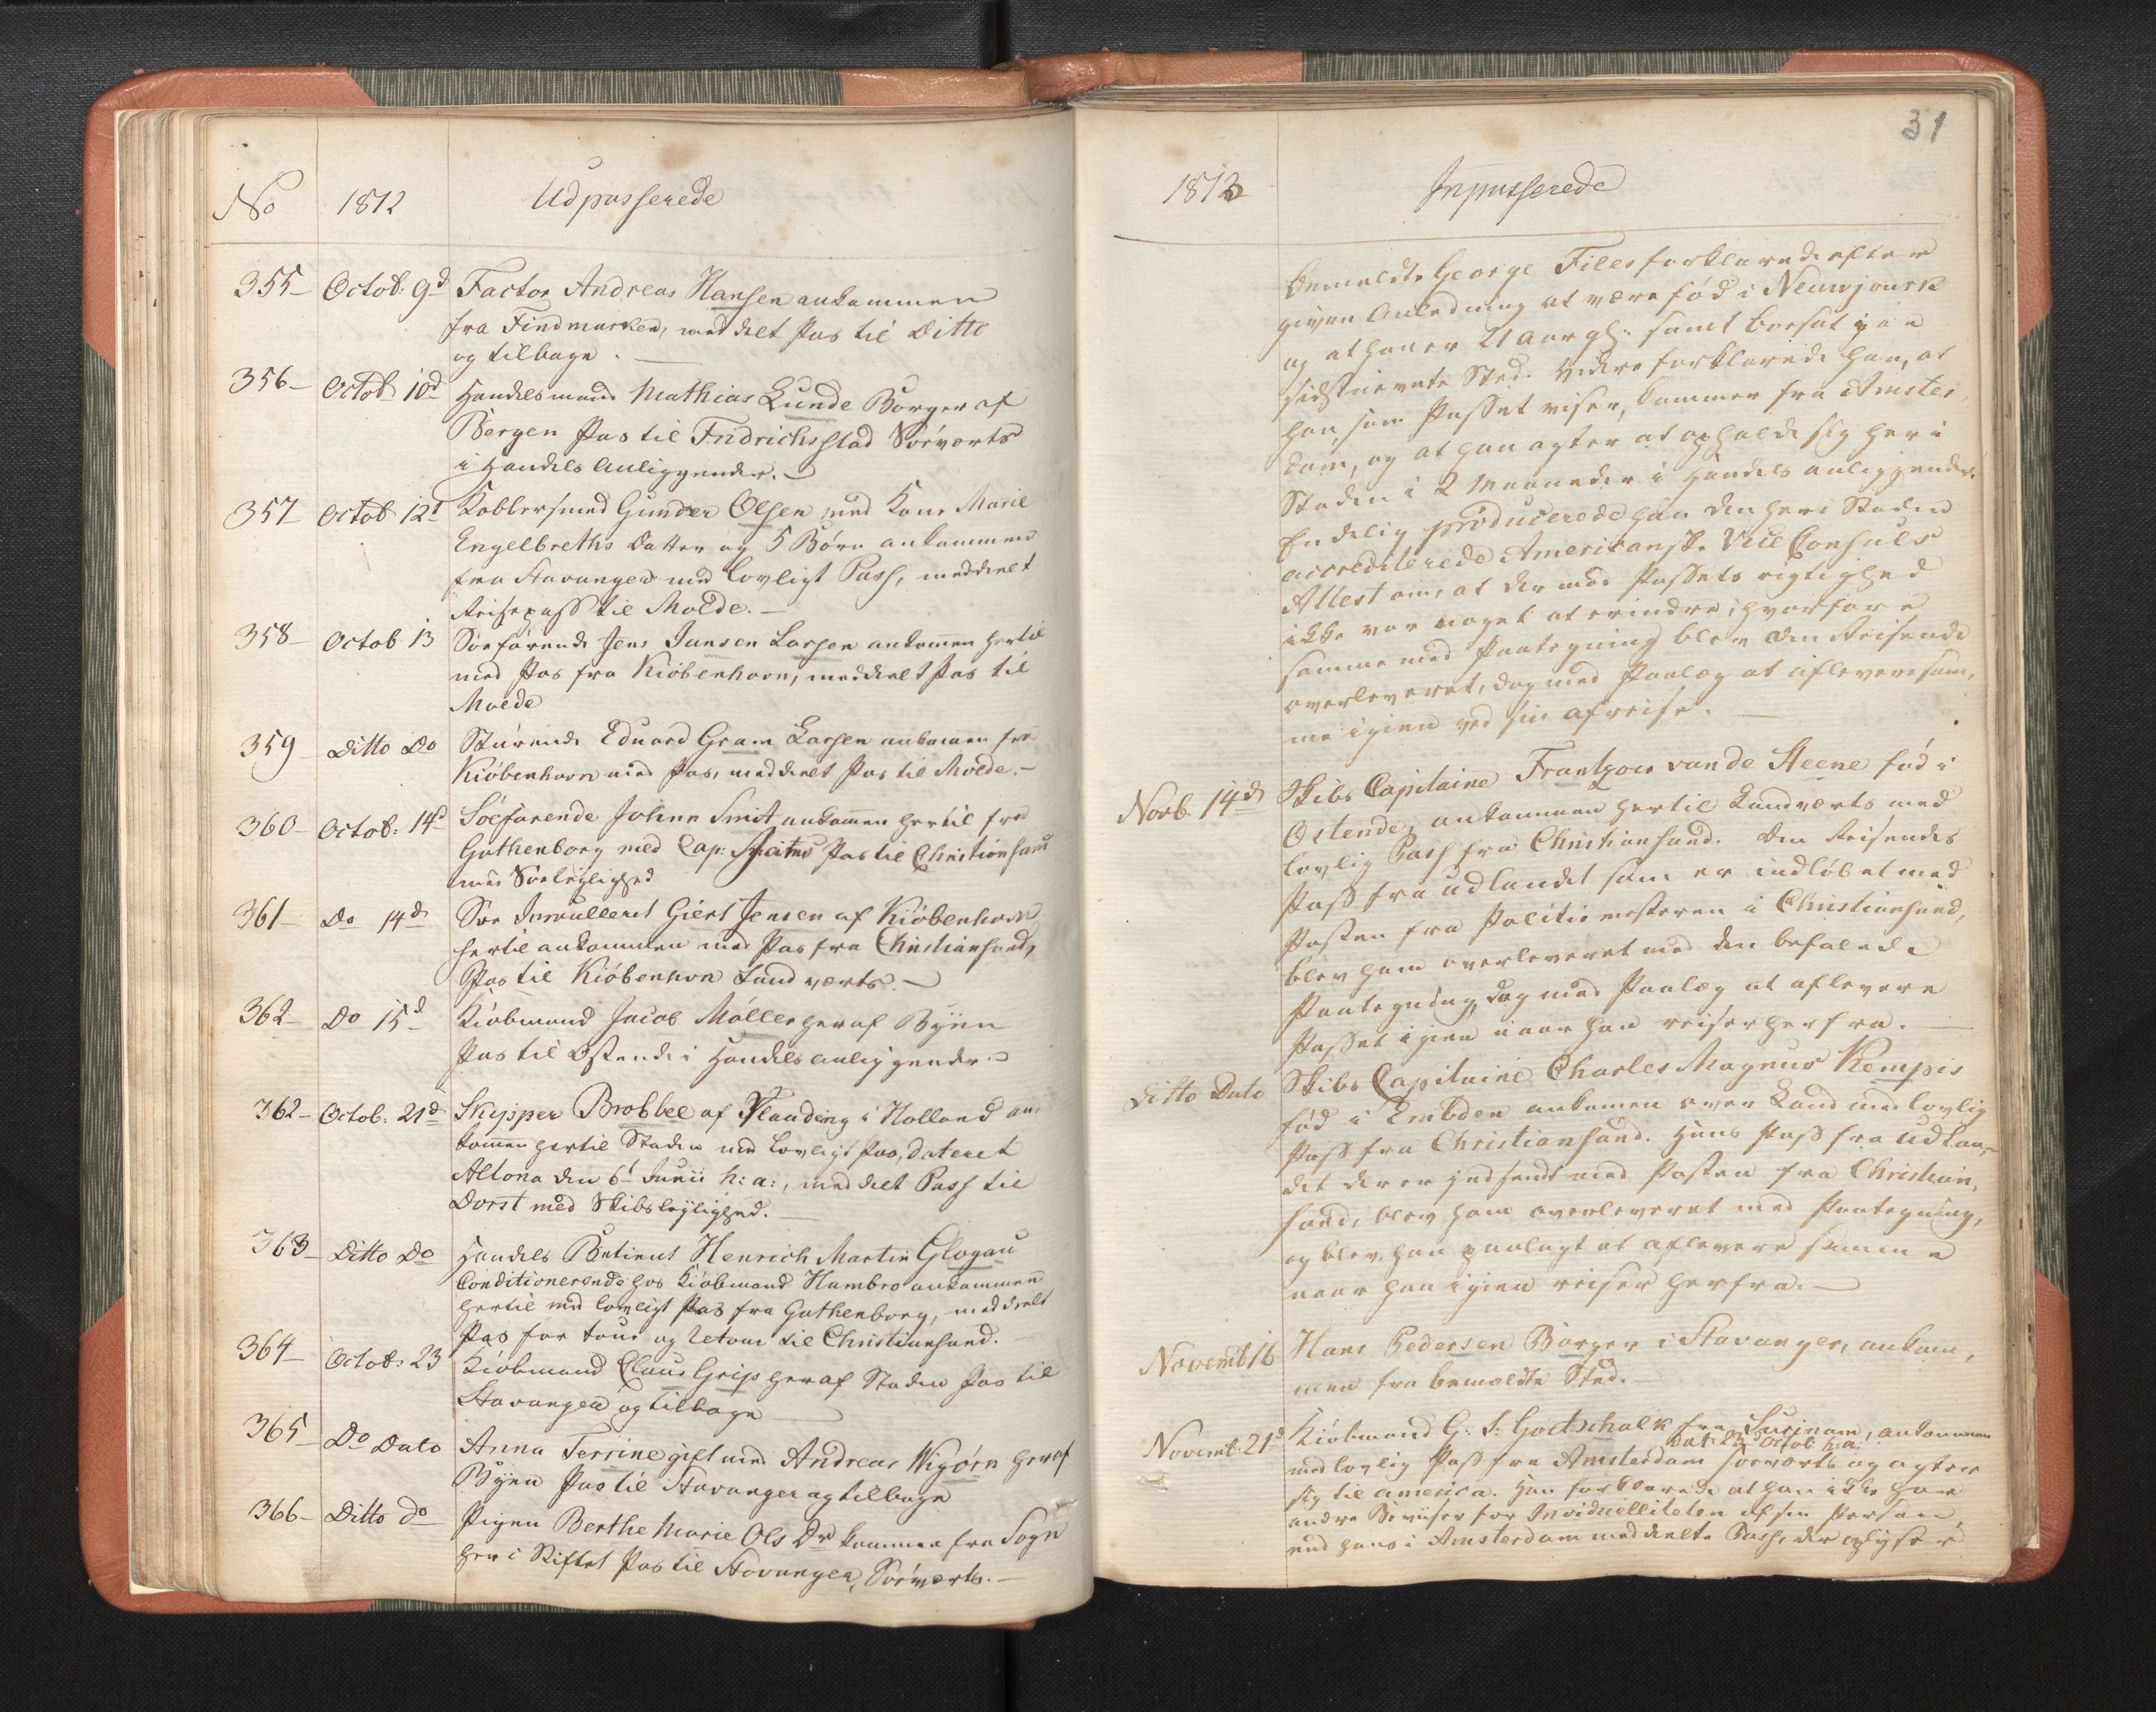 No 1812 Udpasserede
355 Octob: 9d Factor Andreas Hansen ankommen
fra Findmarken, meddelt Pas til Ditto
og tilbage.
356 Octob 10d Handelsmand Mathias Lunde Borger af
Bergen Pas til Fridrichsstad Söeværts
i Handels Anliggender.
357 Octob 12t Kobbersmed Gunder Olsen med Kone Marie
Engelbreths Datter og 5 Börn ankommen
fra Stavanger med lovligt Pass, meddeelt
Reisepass til Molde.
358 Octob 13 Söefarende Jens Jansen Larsen ankommen hertil
med Pas fra Kiöbenhavn, meddeelt Pas til
Molde
359 Ditto Do Eduard Gram Larsen ankommen fra
Kiöbenhavn med Pas, meddeelt Pas til Molde.
360 Octob: 14d Söefarende Johan Smit ankommen hertil fra
Gothenborg med Cap: Pas til Christiansand
med Söeleylighed
361 Do 14d Söe Inroulleret Giert Jensen af Kiöbenhavn
hertil ankommen med Pas fra Christiansand,
Pas til Kiöbenhvn Landværts.
362 Do 15d Kiöbmand Jacob Möller her af Byen
Pas til Ostende i Handels anliggender
362 Octob. 21d Skipper Brobbel af i Holland an,
kommen hertil Staden med lovligt Pas, dateret
Altona den 6t Junii h: a:, meddelt Pass til
Dorst med Skibsleylighed.
363 Ditto Do Handels Betient Henrich Martin Glogau
Conditionerende hos Kiöbmand Hambro ankommen
hertil med lovligt Pas fra Gothenborg, meddeelt
Pas for tour og retour til Christiansand.
364 Octob: 23 Kiöbmand Claus Grip her af Staden Pas til
Stavanger og tilbage
365 Do Dato Anna Terrine gift med Andreas Wigörn her af
Byen Pas til Stavanger og tilbage
366 Ditto do Pigen Berthe Marie Ols Dr kommen fra Sogn
her i Stiftet Pas til Stavanger, Söeværts.
31
1812 Inpasserede
bemeldte George Files forklarede efter
given Anledning at være fød i Neuwjourk
og at han er 21 Aar gl: samt boesat paa
sidstnævnte Sted. Videre forklarede han, at
han, som Passet viser, kommer fra Amster,
dam, og at han agter at opholde sig her i
Staden i 2 Maaneder i Handels anliggender.
Endelig producerede han den her i Staden
accrediterede Amerikanske Vice Consuls
Attest om, at der mod Passets rigtighed
ikke var noget at erindre; hvorfore
samme med Paategning blev den Reisende
overleveret, dog med Paalæg at aflevere sam,
me igien ved sin afreise.
Novb. 14d Skibs Capitaine Frantzois van de Steene fød i
Ostende, ankommen hertil Landværts med
lovlig Pass fra Christiansand. Den Reisendes
Pass fra Udlandet som er indløbet med
Posten fra Politiemesteren i Christiansand,
blev ham overleveret med den befalede
Paategning, dog med Paalæg at aflevere
Passet igien naar han reiser herfra.
Ditto Dato Skibs Capitaine Charles Magnus Kempis
fød i Embden ankommen over Land med lovlig
Pass fra Christiansand. Hans Pass fra Udlan,
det der er indsendt med Posten fra Christian,
sand, blev ham overleveret med Paategning,
og blev han paalagt at aflevere samme
naar han igien reiser herfra.
Novemb 16 Hans Pedersen Borger i Stavanger, ankom,
men fra bemeldte Sted.
Novemb: 21d Kiöbmand G: S: Gottschalk fra Surinam, ankommen
dat: 23d Octob: h: a:
med lovlig Pass fra Amsterdam söeværts og agter
sig til America. Han forklarede at han ikke har
andre Beviiser for Inviduelliteten af sin Person,
end hans i Amsterdam meddeelte Pass, der oplyser